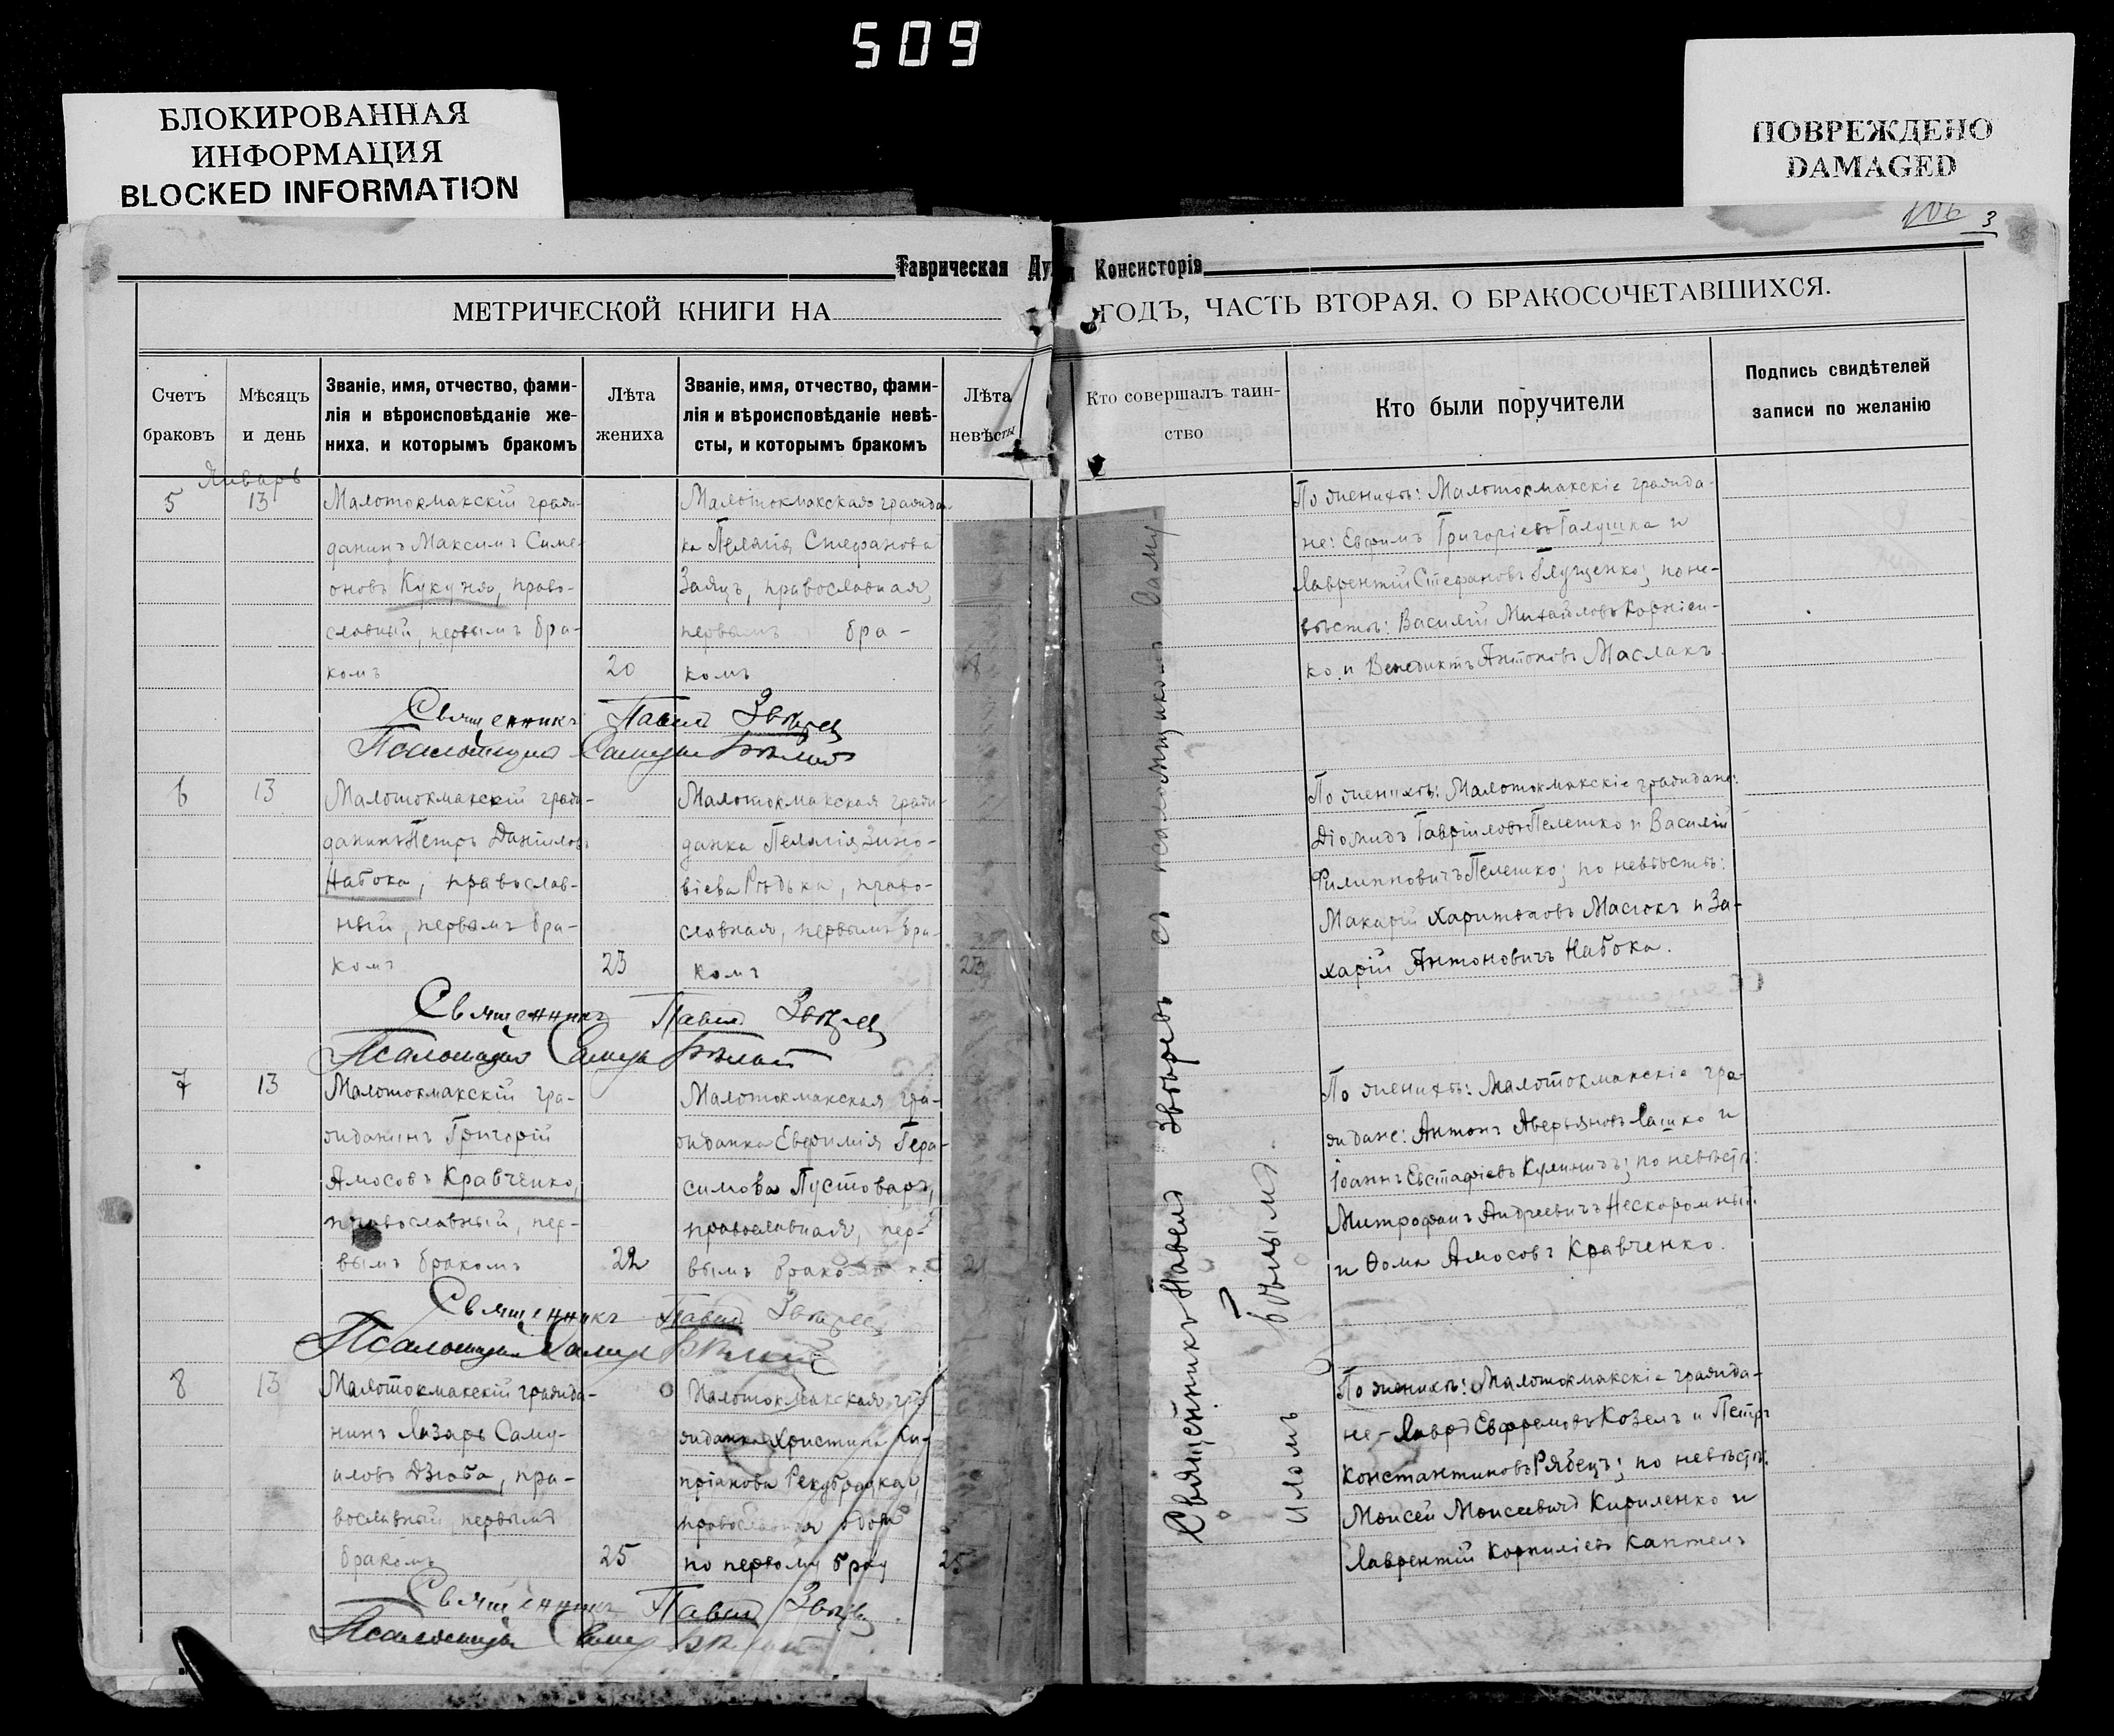 509
БЛОКИРОВАННАЯ
ИНФОРМАЦИЯ
BLOCKED INFORMATION
ПОВРЕЖДЕНО
DAMAGED
106 3
Таврическая Ду Консисторія
МЕТРИЧЕСКОЙ КНИГИ НА ГОДЪ, ЧАСТЬ ВТОРАЯ, О БРАКОСОЧЕТАВШИХСЯ.
Счетъ
браковъ
Мѣсяцъ
и день
Званіе, имя, отчество, фами-
лія и вѣроисповѣданіе же-
ниха, и которымъ бракомъ
Лѣта
жениха
Званіе, имя, отчество, фами-
лія и вѣроисповѣданіе невѣ-
сты, и которымъ бракомъ
Лѣта
невѣсты
Кто совершалъ таин-
ство
Кто были поручители
Подпись свидѣтелей
записи по желанію
Январь
5
13
Малотокмакскій граж-
данинъ Максимъ Симе-
оновъ Кукуня, право-
славный, первымъ бра-
комъ
20
Малотокмакская граждан-
ка Пелагія Стефанова
Заяцъ, православная,
первымъ бра-
комъ
По женихѣ: Малотокмакскіе гражда-
не: Евфимъ Григоріевъ Галушка и
Лаврентій Стефановъ Глущенко; по не-
вѣстѣ: Василій Михайловъ Корніен-
ко и Венедиктъ Антоновъ Маслакъ.
Священникъ Павелъ Звѣревъ
Псаломщикъ Самуилъ Бѣлый
6
13
Малотокмакскій граж-
данинъ Петръ Даніиловъ
Набока, православ-
ный, первымъ бра-
комъ
23
Малотокмакская граж-
данка Пелагія Зино-
віева Рѣдька, право-
славная, первымъ бра-
комъ
23
По женихѣ: Малотокмакскіе граждане:
Діомидъ Гавріиловъ Пелешко и Василій
Филипповичъ Пелешко; по невѣстѣ:
Макарій Харитоновъ Масюкъ и За-
харій Антоновичъ Набока.
Священникъ Павелъ Звѣревъ
Псаломщикъ Самуилъ Бѣлый
7
13
Малотокмакскій гра-
жданинъ Григорій
Амосовъ Кравченко,
православный, пер-
вымъ бракомъ
22
Малотокмакская гра-
жданка Евфимія Гера-
симова Пустоваръ,
православная, пер-
вымъ бракомъ
21
По женихѣ: Малотокмакскіе гра-
ждане: Антонъ Аверьяновъ Лашко и
Іоаннъ Евстафіевъ Кулиничъ; по невѣстѣ:
Митрофанъ Андреевичъ Нескоромный
и Ѳома Амосовъ Кравченко.
Священникъ Павелъ Звѣревъ
Псаломщикъ Самуилъ Бѣлый
8
13
Малотокмакскій гражда-
нинъ Лазарь Саму-
иловъ Дзюба, пра-
вославный, первымъ
бракомъ
25
Малотокмакская гра-
жданка Христина Ки-
пріанова
православная
по первому браку
25
По женихѣ: Малотокмакскіе гражда-
не - Лавръ Евфремовъ Козелъ и Петръ
Константиновъ Рябецъ; по невѣстѣ:
Моисей Моисеевичъ Кириленко и
Лаврентій Корниліевъ Каптелъ
Священникъ Павелъ Звѣревъ
Псаломщикъ Самуилъ Бѣлый
Священникъ Павелъ Звѣревъ съ псаломщикомъ Саму-
иломъ Бѣлымъ.